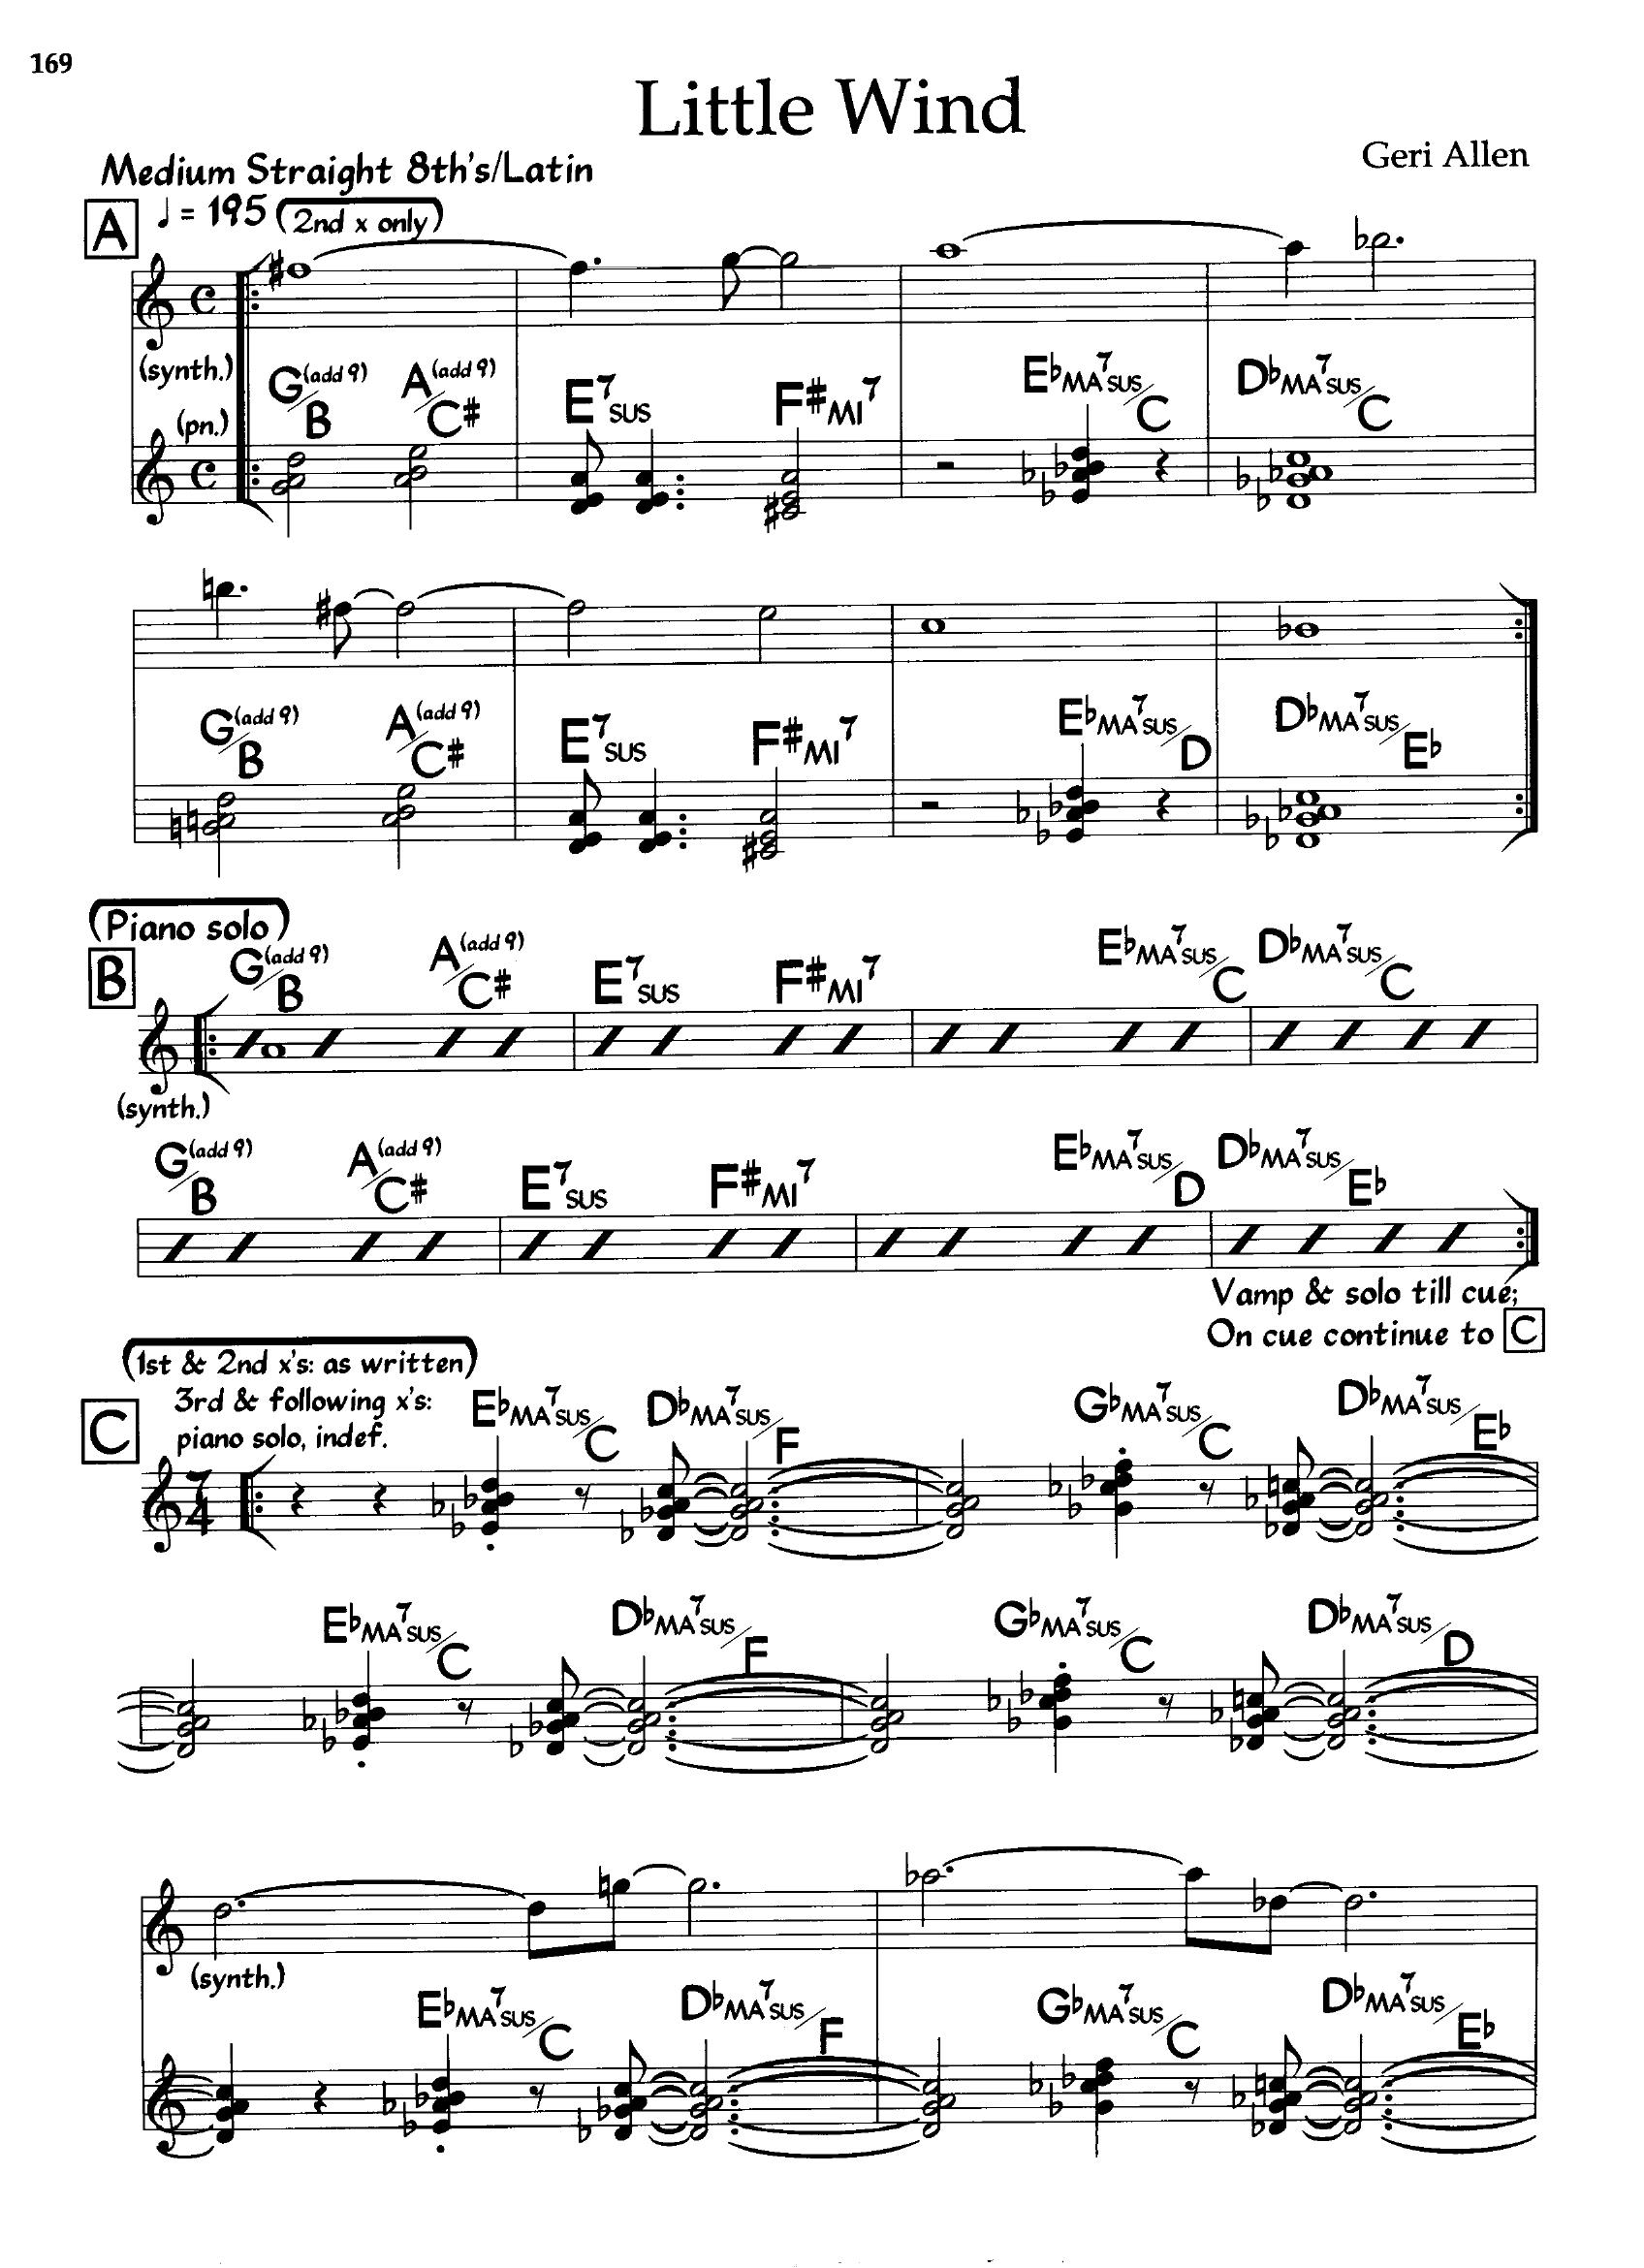 169
Little Wind
Geri Allen
Medium Straight 8th's/Latin
A ♩ = 195 (2nd x only)
(synth.)
G(add 9)/B A(add 9)/C# E7SUS F#MI7 E♭MA7SUS/C D♭MA7SUS/C
(pn.)
G(add 9)/B A(add 9)/C# E7SUS F#MI7 E♭MA7SUS/D D♭MA7SUS/E♭
(Piano solo)
B G(add 9)/B A(add 9)/C# E7SUS F#MI7 E♭MA7SUS/C D♭MA7SUS/C
(synth.)
G(add 9)/B A(add 9)/C# E7SUS F#MI7 E♭MA7SUS/D D♭MA7SUS/E♭
Vamp & solo till cue;
On cue continue to C
(1st & 2nd x's: as written)
3rd & following x's:
C piano solo, indef.
E♭MA7SUS/C D♭MA7SUS/F G♭MA7SUS/C D♭MA7SUS/E♭
7
4
E♭MA7SUS/C D♭MA7SUS/F G♭MA7SUS/C D♭MA7SUS/D
(synth.)
E♭MA7SUS/C D♭MA7SUS/F G♭MA7SUS/C D♭MA7SUS/E♭